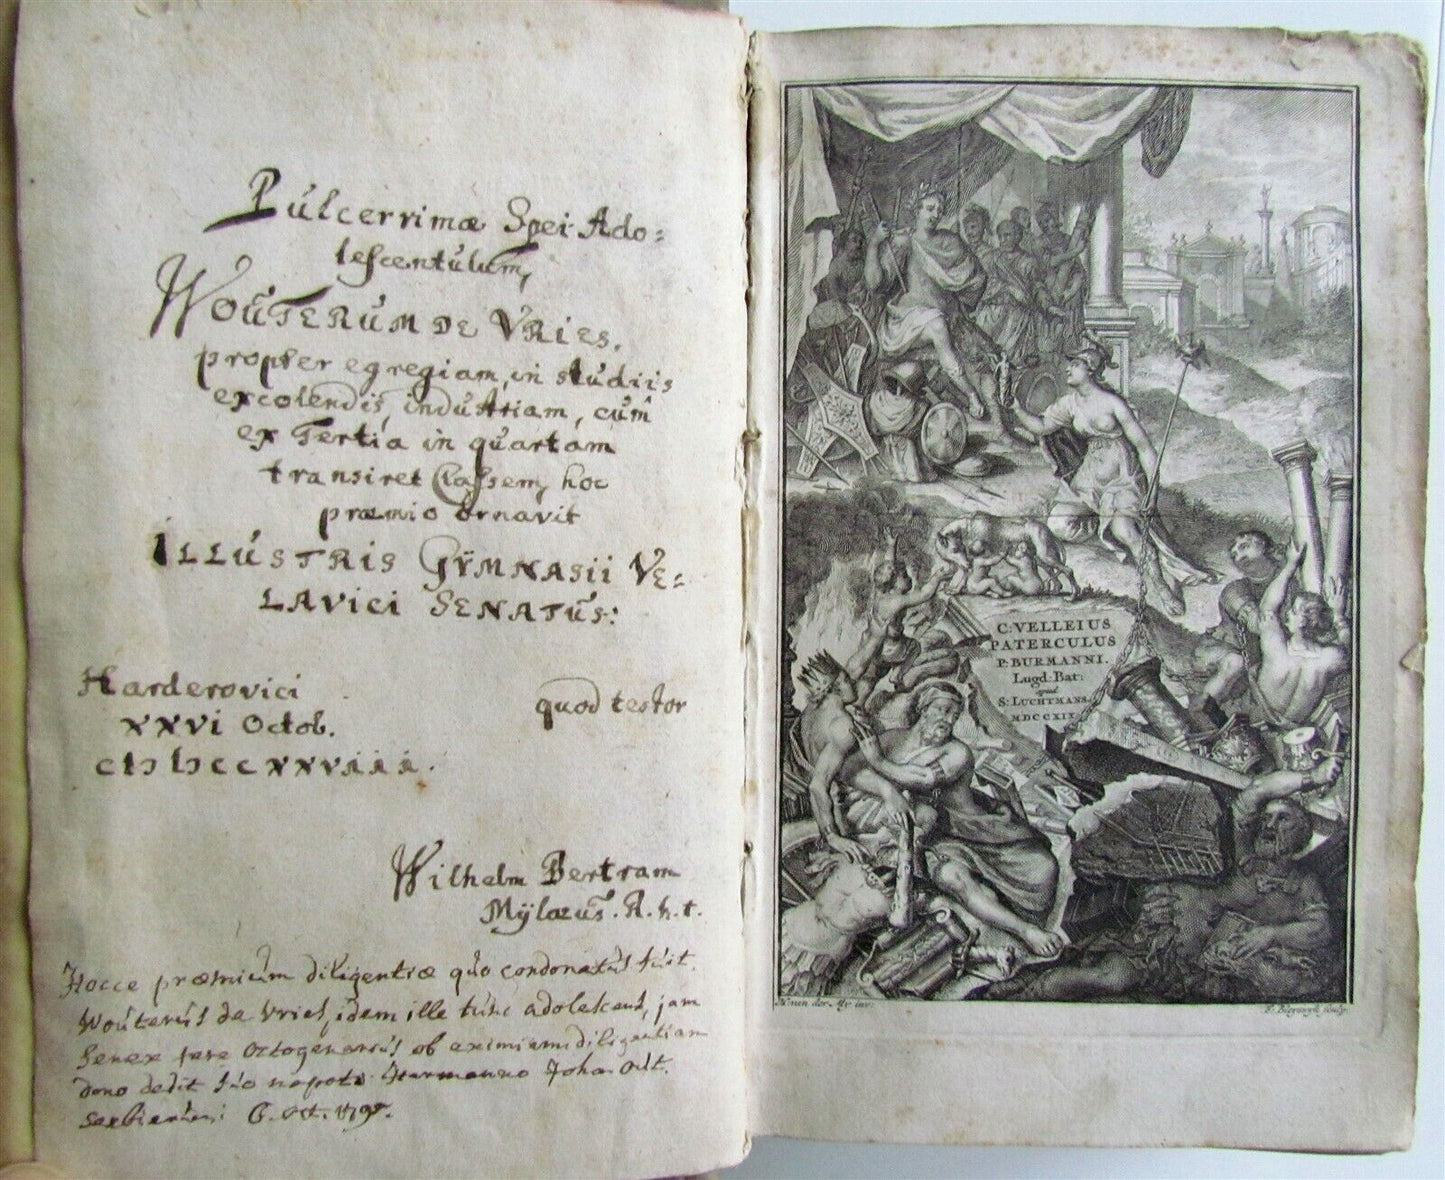 Pulcerrimæ Spei Ado=
lescentulum,
WOUTERUM DE VRIES.
propter egregiam, in studiis
excolendis, industriam, cum
ex Tertia in quartam
transiret Classem, hoc
præmio ornavit
ILLUSTRIS GŸMNASII VE=
LAVICI SENATUS:
Harderovici quod testor
XXVI Octob.
CIƆ IƆCCXXVIII.
Wilhelm Bertram
Mÿlæus. R. h. t.
Hocce præmium diligentiæ quo condonatus fuit
Wouterus de Vries, idem ille tunc adolescens, jam
Senex fere Octogenarius ob eximiam diligentiam
dono dedit suo nepoti Hermanno Joha
6. Oct.
C: VELLEIUS
PATERCULUS
P: BURMANNI.
Lugd: Bat:
apud
S: LUCHTMANS.
MDCCXIX
inv:
F: Bleyswyk sculp: